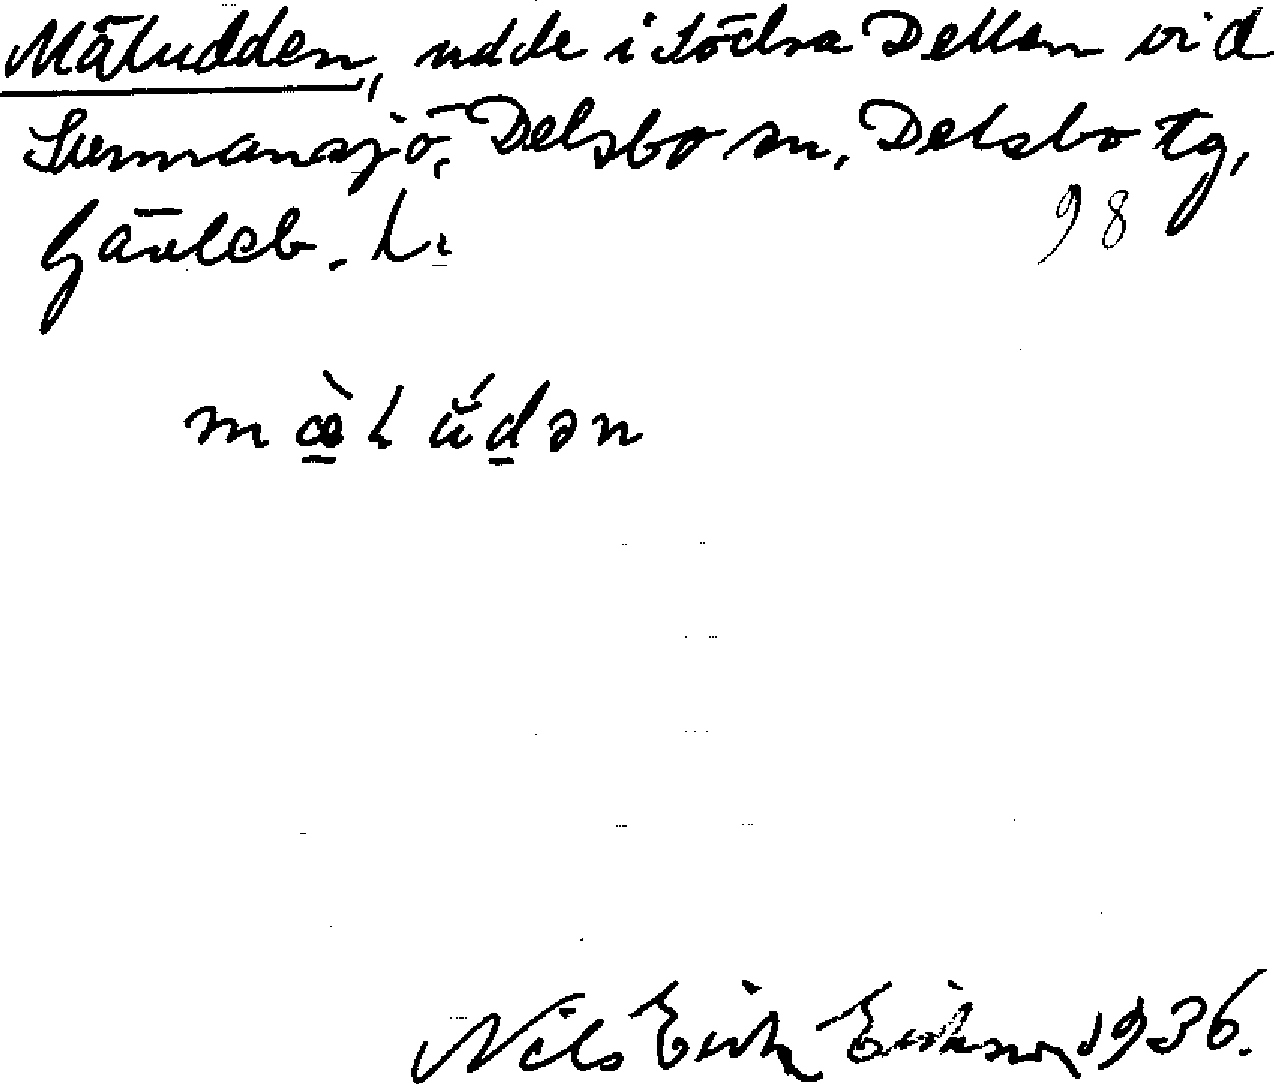 Mäludden, udde i Södra Dellen vid
Svermansjö, Delsbo sn, Delsbo tg,
Gävleb. L.
98
mæ̀l ŭ́dən
Nils Erik Eriksson 1936.